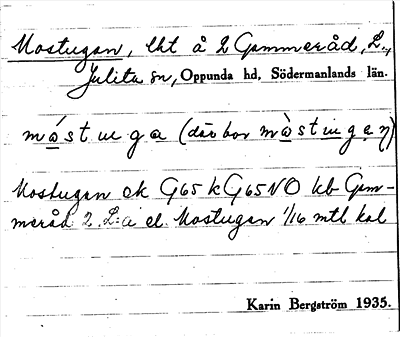 Mostugan, lht å 2 Gammeråd, L.,
Julita sn, Oppunda hd, Södermanlands län.
mo̲stuga (där bor mò̲stugan)
Mostugan ek G65 k G65 NO kb Gam-
meråd 2 L:a el. Mostugan 1/16 mtl kal
Karin Bergström 1935.